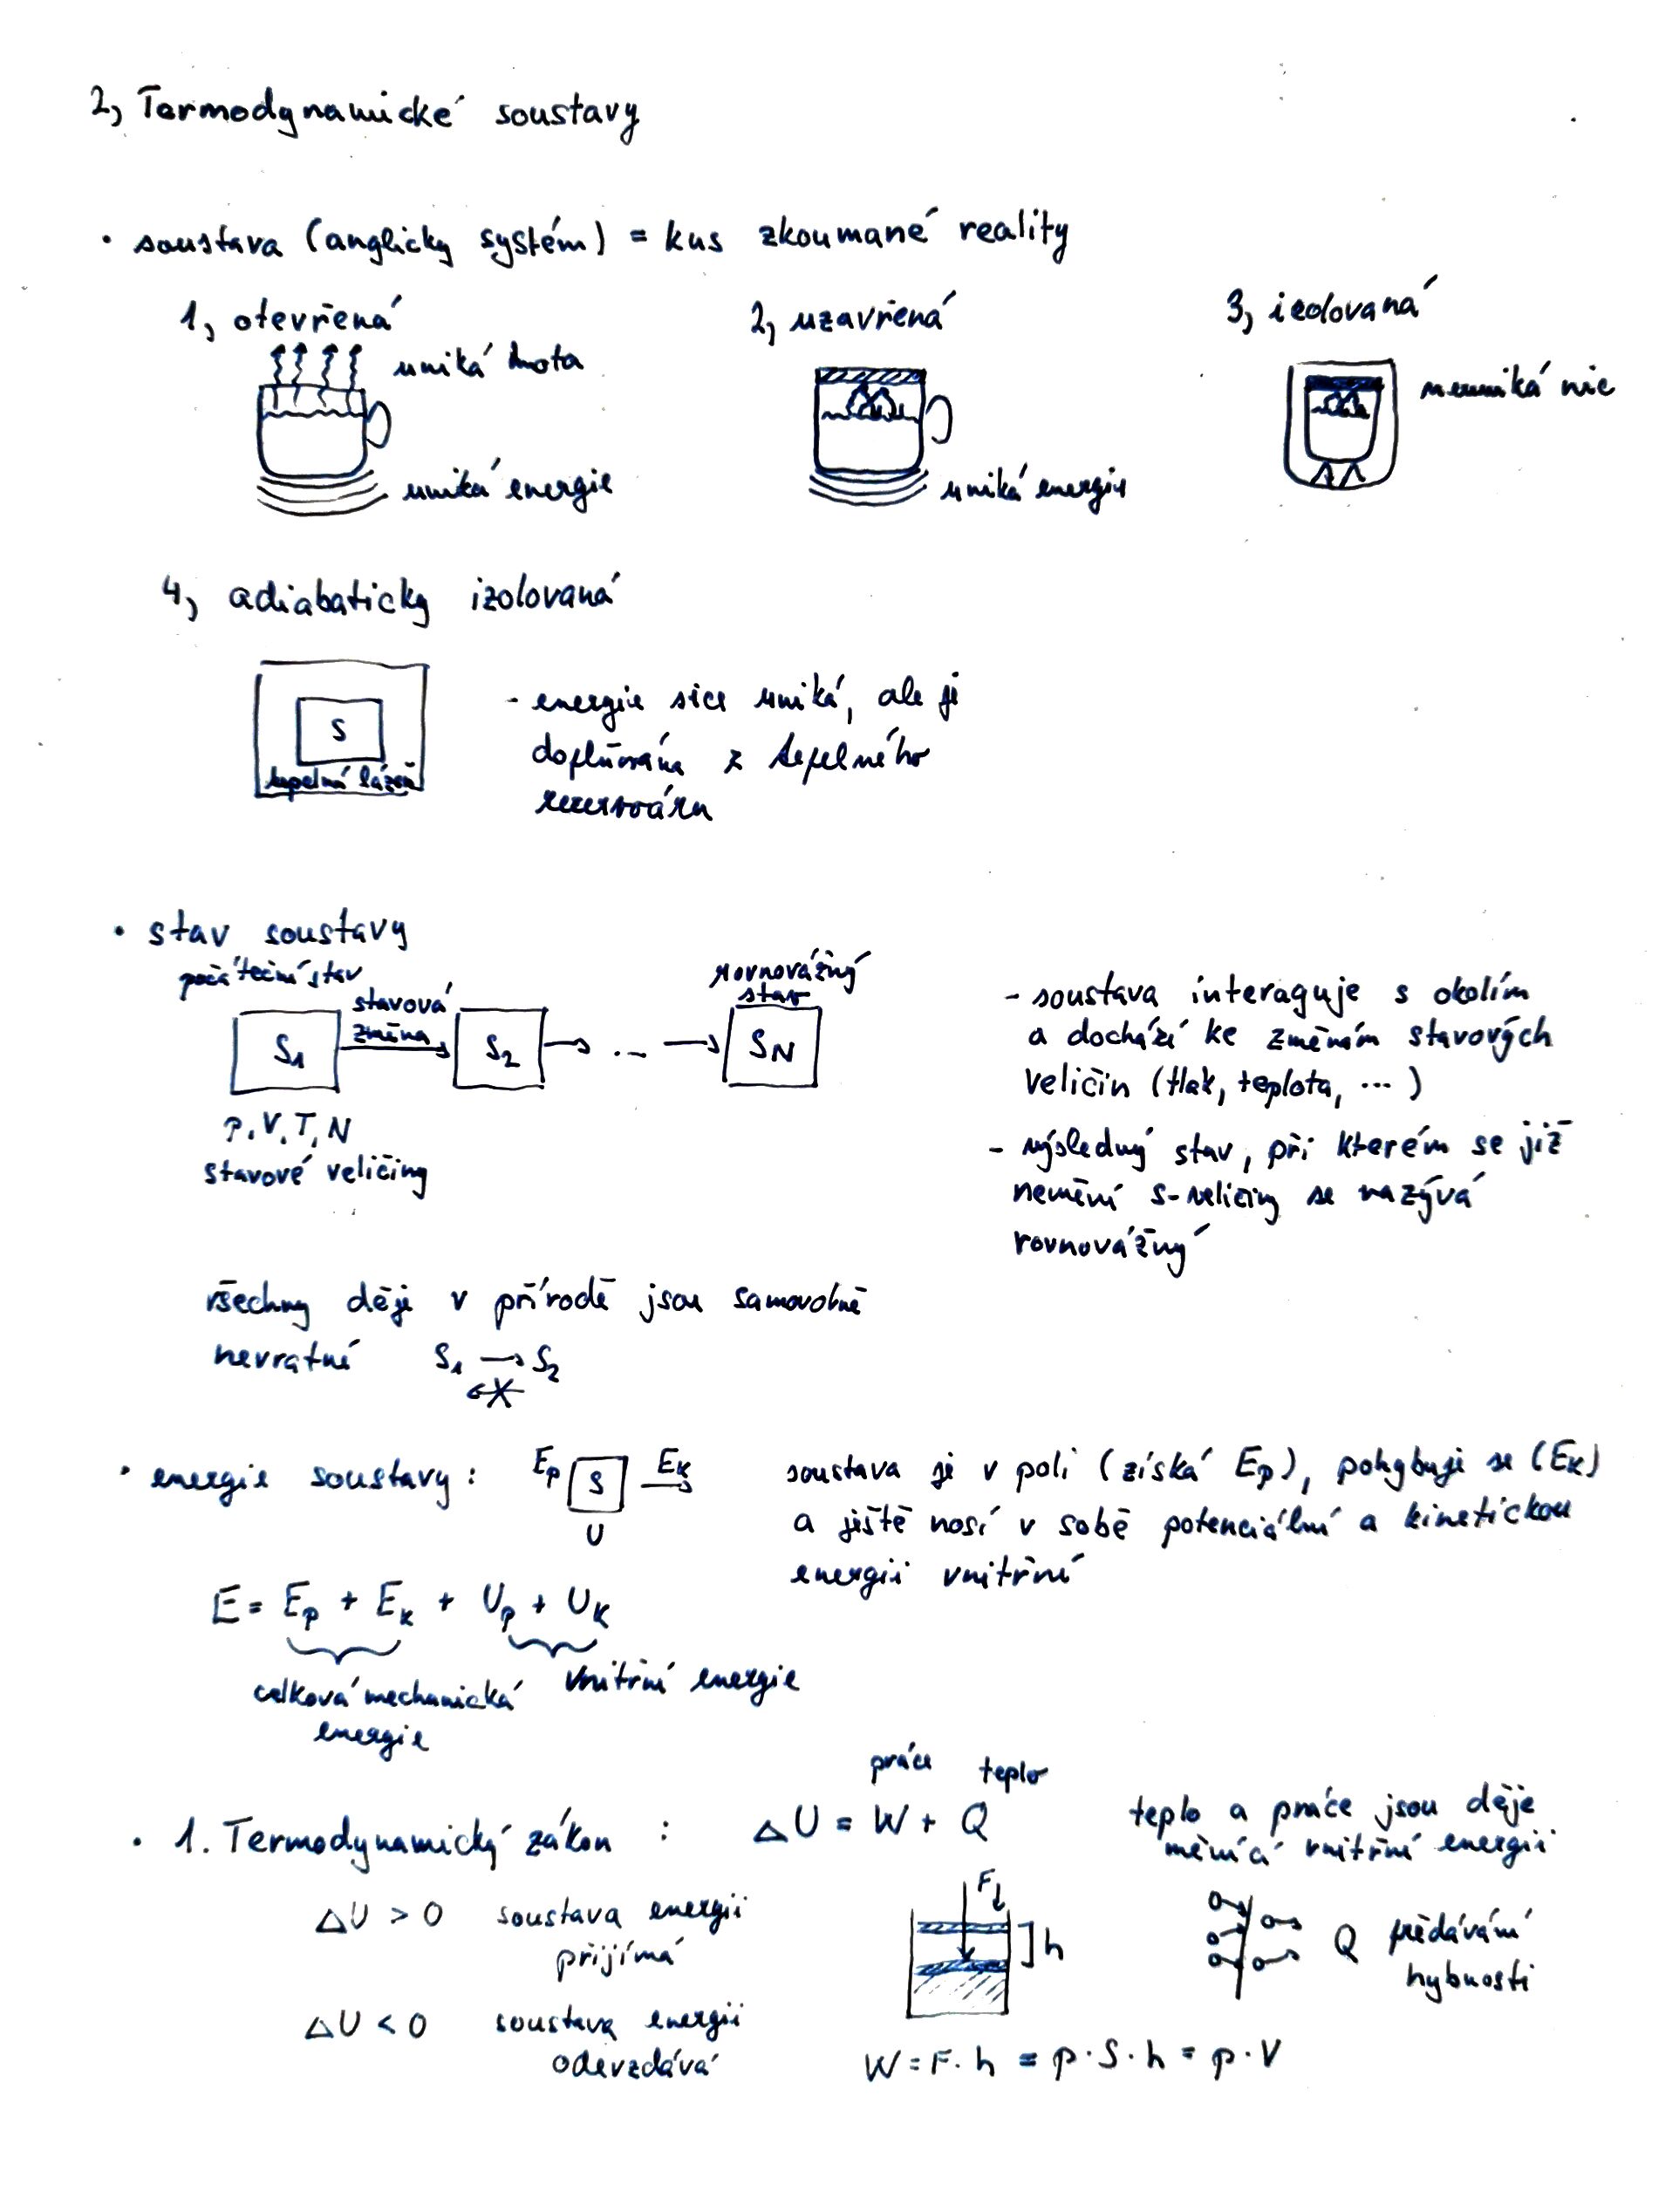 2, Termodynamické soustavy
• soustava (anglicky systém) = kus zkoumané reality
1, otevřená
uniká hmota
uniká energie
2, uzavřená
uniká energie
3, izolovaná
neuniká nic
4, adiabaticky izolovaná
S
tepelná lázeň
- energie sice uniká, ale je
doplňována z tepelného
rezervoáru
• stav soustavy
počáteční stav
stavová
změna
rovnovážný
stav
S1 → S2 → ... → SN
p, V, T, N
stavové veličiny
- soustava interaguje s okolím
a dochází ke změnám stavových
veličin (tlak, teplota, ...)
- výsledný stav, při kterém se již
nemění s-veličiny se nazývá
rovnovážný
všechny děje v přírodě jsou samovolně
nevratné S1 → S2
• energie soustavy: Ep S Ek
U
soustava je v poli (získá Ep), pohybuje se (Ek)
a ještě nosí v sobě potenciální a kinetickou
energii vnitřní
E = Ep + Ek + Up + Uk
celková mechanická
energie
vnitřní energie
práce teplo
• 1. Termodynamický zákon : ΔU = W + Q
teplo a práce jsou děje
měnící vnitřní energii
ΔU > 0 soustava energii
přijímá
ΔU < 0 soustava energii
odevzdává
F
h
Q předávání
hybnosti
W = F · h = p · S · h = p · V